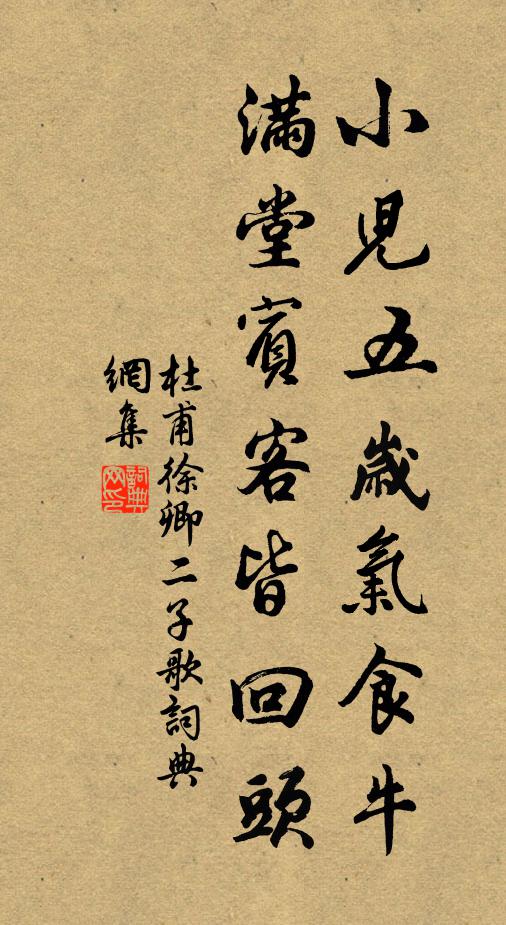 小兒五歲氣食牛
滿堂賓客皆回頭
杜甫徐卿二子歌詞典
網集
詞典
网印